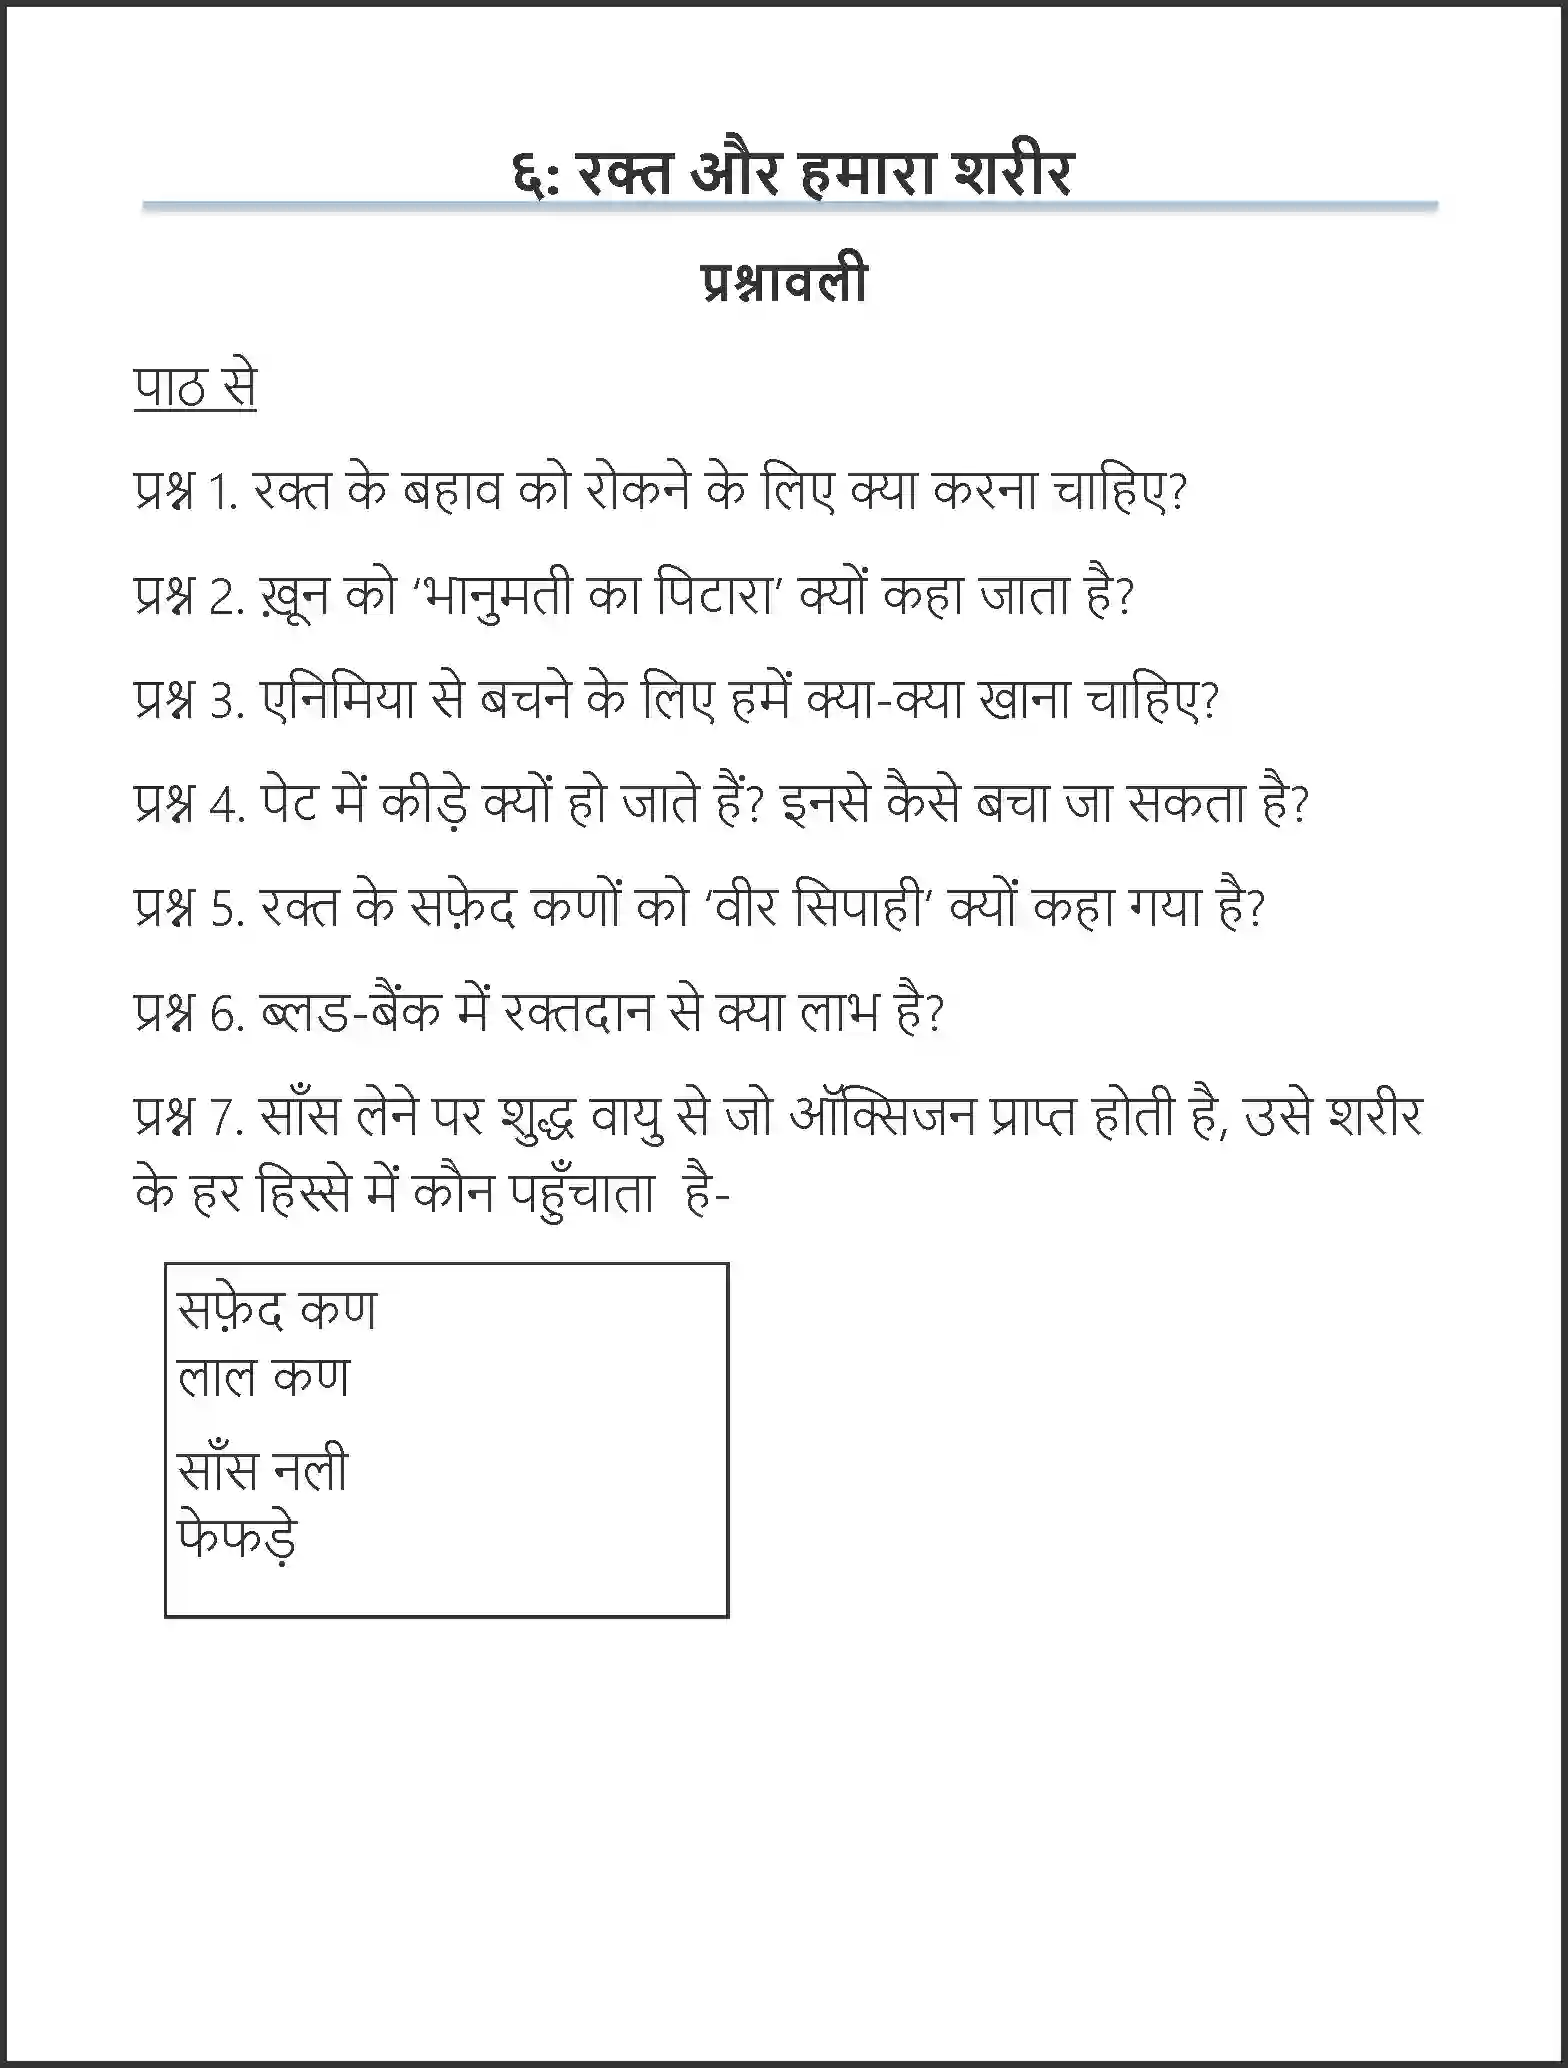 ६: रक्त और हमारा शरीर
प्रश्नावली
पाठ से
प्रश्न 1. रक्त के बहाव को रोकने के लिए क्या करना चाहिए?
प्रश्न 2. ख़ून को ‘भानुमती का पिटारा’ क्यों कहा जाता है?
प्रश्न 3. एनिमिया से बचने के लिए हमें क्या-क्या खाना चाहिए?
प्रश्न 4. पेट में कीड़े क्यों हो जाते हैं? इनसे कैसे बचा जा सकता है?
प्रश्न 5. रक्त के सफ़ेद कणों को ‘वीर सिपाही’ क्यों कहा गया है?
प्रश्न 6. ब्लड-बैंक में रक्तदान से क्या लाभ है?
प्रश्न 7. साँस लेने पर शुद्ध वायु से जो ऑक्सिजन प्राप्त होती है, उसे शरीर
के हर हिस्से में कौन पहुँचाता है-
सफ़ेद कण
लाल कण
साँस नली
फेफड़े